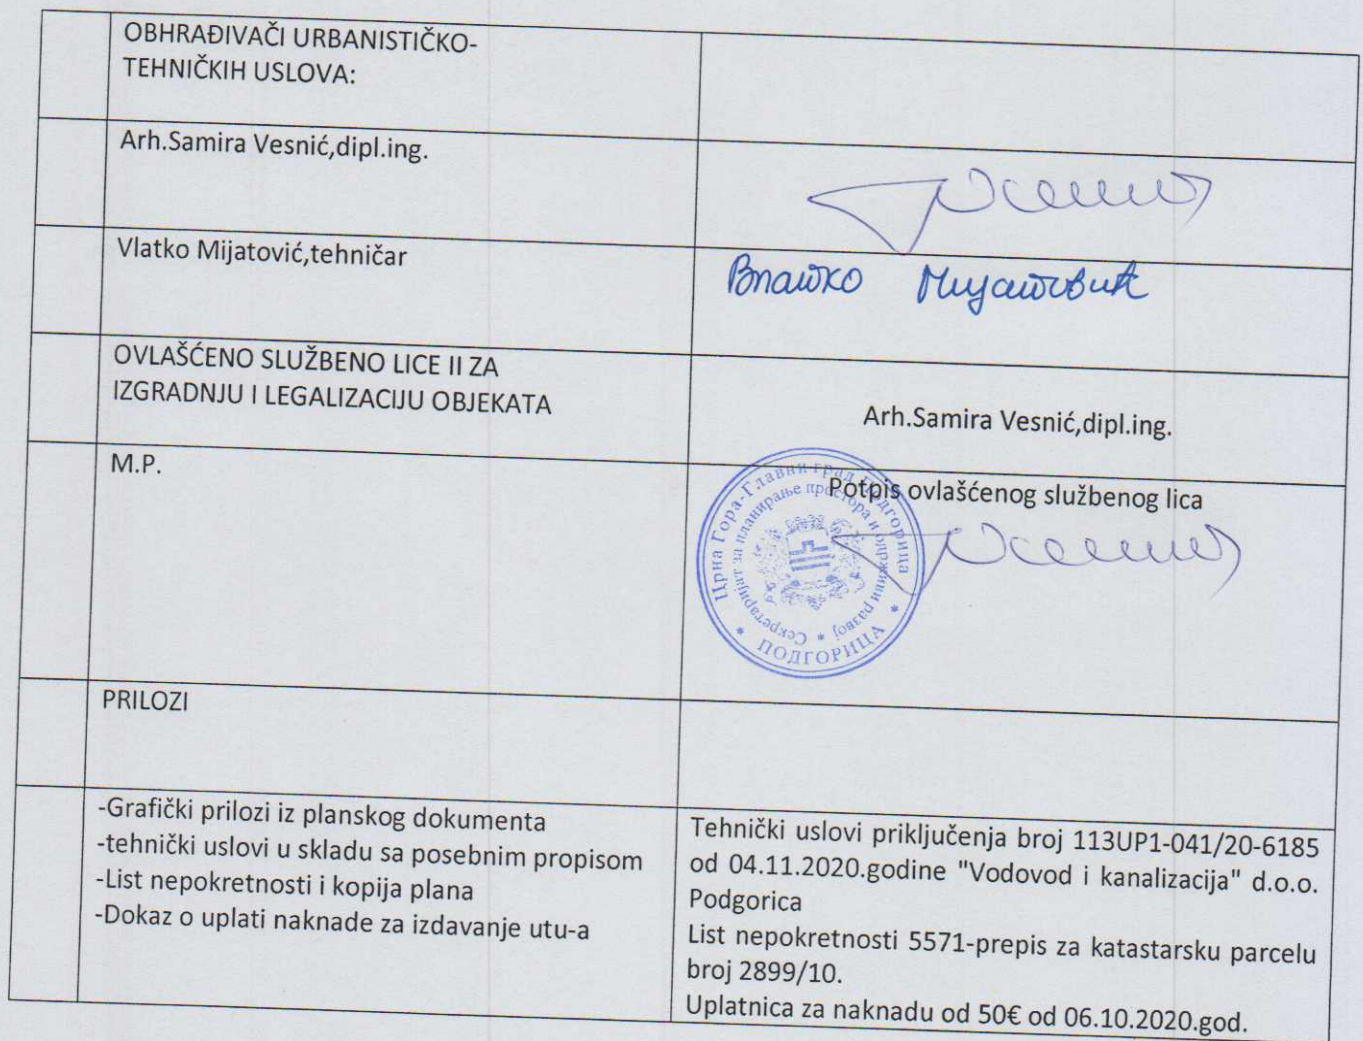 OBHRAĐIVAČI URBANISTIČKO-
TEHNIČKIH USLOVA:
Arh.Samira Vesnić,dipl.ing.
Vlatko Mijatović,tehničar
Влатко Мијатовић
OVLAŠĆENO SLUŽBENO LICE II ZA
IZGRADNJU I LEGALIZACIJU OBJEKATA
Arh.Samira Vesnić,dipl.ing.
M.P.
Potpis ovlašćenog službenog lica
Црна Гора-Главни град Подгорица
Секретаријат за планирање простора и одрживи развој
* ПОДГОРИЦА *
PRILOZI
-Grafički prilozi iz planskog dokumenta
-tehnički uslovi u skladu sa posebnim propisom
-List nepokretnosti i kopija plana
-Dokaz o uplati naknade za izdavanje utu-a
Tehnički uslovi priključenja broj 113UP1-041/20-6185
od 04.11.2020.godine "Vodovod i kanalizacija" d.o.o.
Podgorica
List nepokretnosti 5571-prepis za katastarsku parcelu
broj 2899/10.
Uplatnica za naknadu od 50€ od 06.10.2020.god.